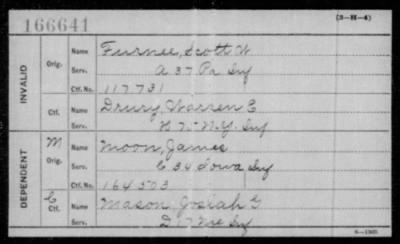 166641
(3-H-4)
INVALID
Orig.
Name Furnee, Scott W
Serv. A 37 Pa Inf
Ctf. No. 117731
Ctf.
Name Drury, Warren C
Serv. H 75 N.Y. Inf
DEPENDENT
M
Orig.
Name Moon, James
Serv. C 34 Iowa Inf
Ctf. No. 164503
C
Ctf.
Name Mason, Josiah
Serv. D 17 Me Inf